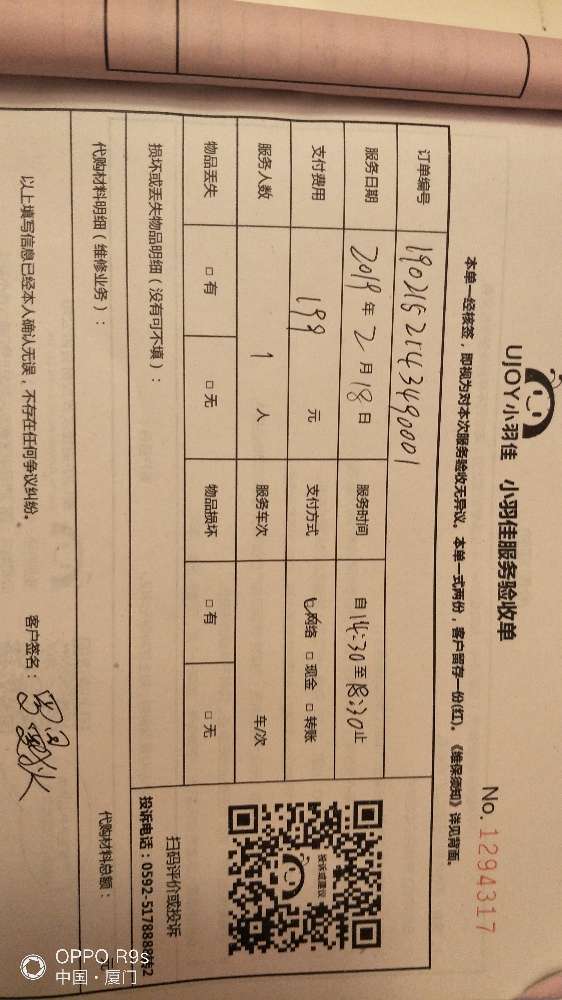 UJOY小羽佳 小羽佳服务验收单
No. 1294317
本单一经核签，即视为对本次服务验收无异议。本单一式两份，客户留存一份(红)。《维保须知》详见背面。
订单编号 1902162143490001
服务日期 2019年2月18日 服务时间 自14:30至18:30止
支付费用 199 元 支付方式 □网络 □现金 □转账
服务人数 1 人 服务车次 车/次
物品丢失 □有 □无 物品损坏 □有 □无
投诉或建议
扫码评价或投诉
投诉电话：0592-5178888转2
损坏或丢失物品明细（没有可不填）：
代购材料明细（维修业务）： 代购材料总额： 元
以上填写信息已经本人确认无误，不存在任何争议纠纷。 客户签名：
OPPO R9s
中国·厦门